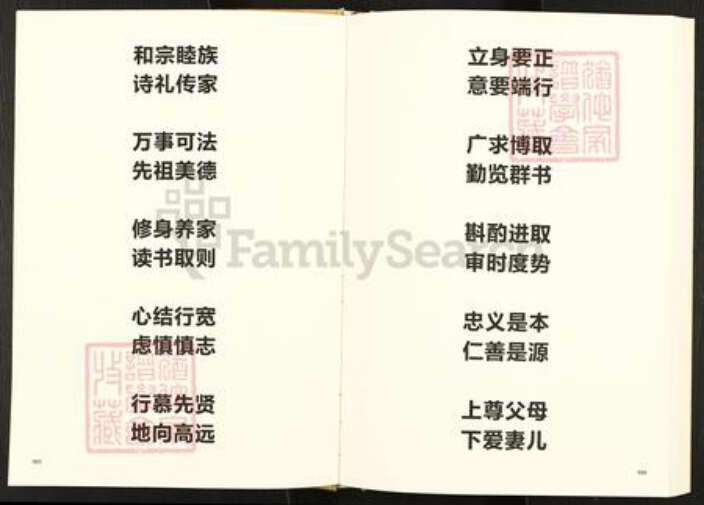 和宗睦族
诗礼传家
万事可法
先祖美德
修身养家
读书取则
心结行宽
虑慎慎志
行慕先贤
地向高远
立身要正
意要端行
广求博取
勤览群书
斟酌进取
审时度势
忠义是本
仁善是源
上尊父母
下爱妻儿
FamilySearch